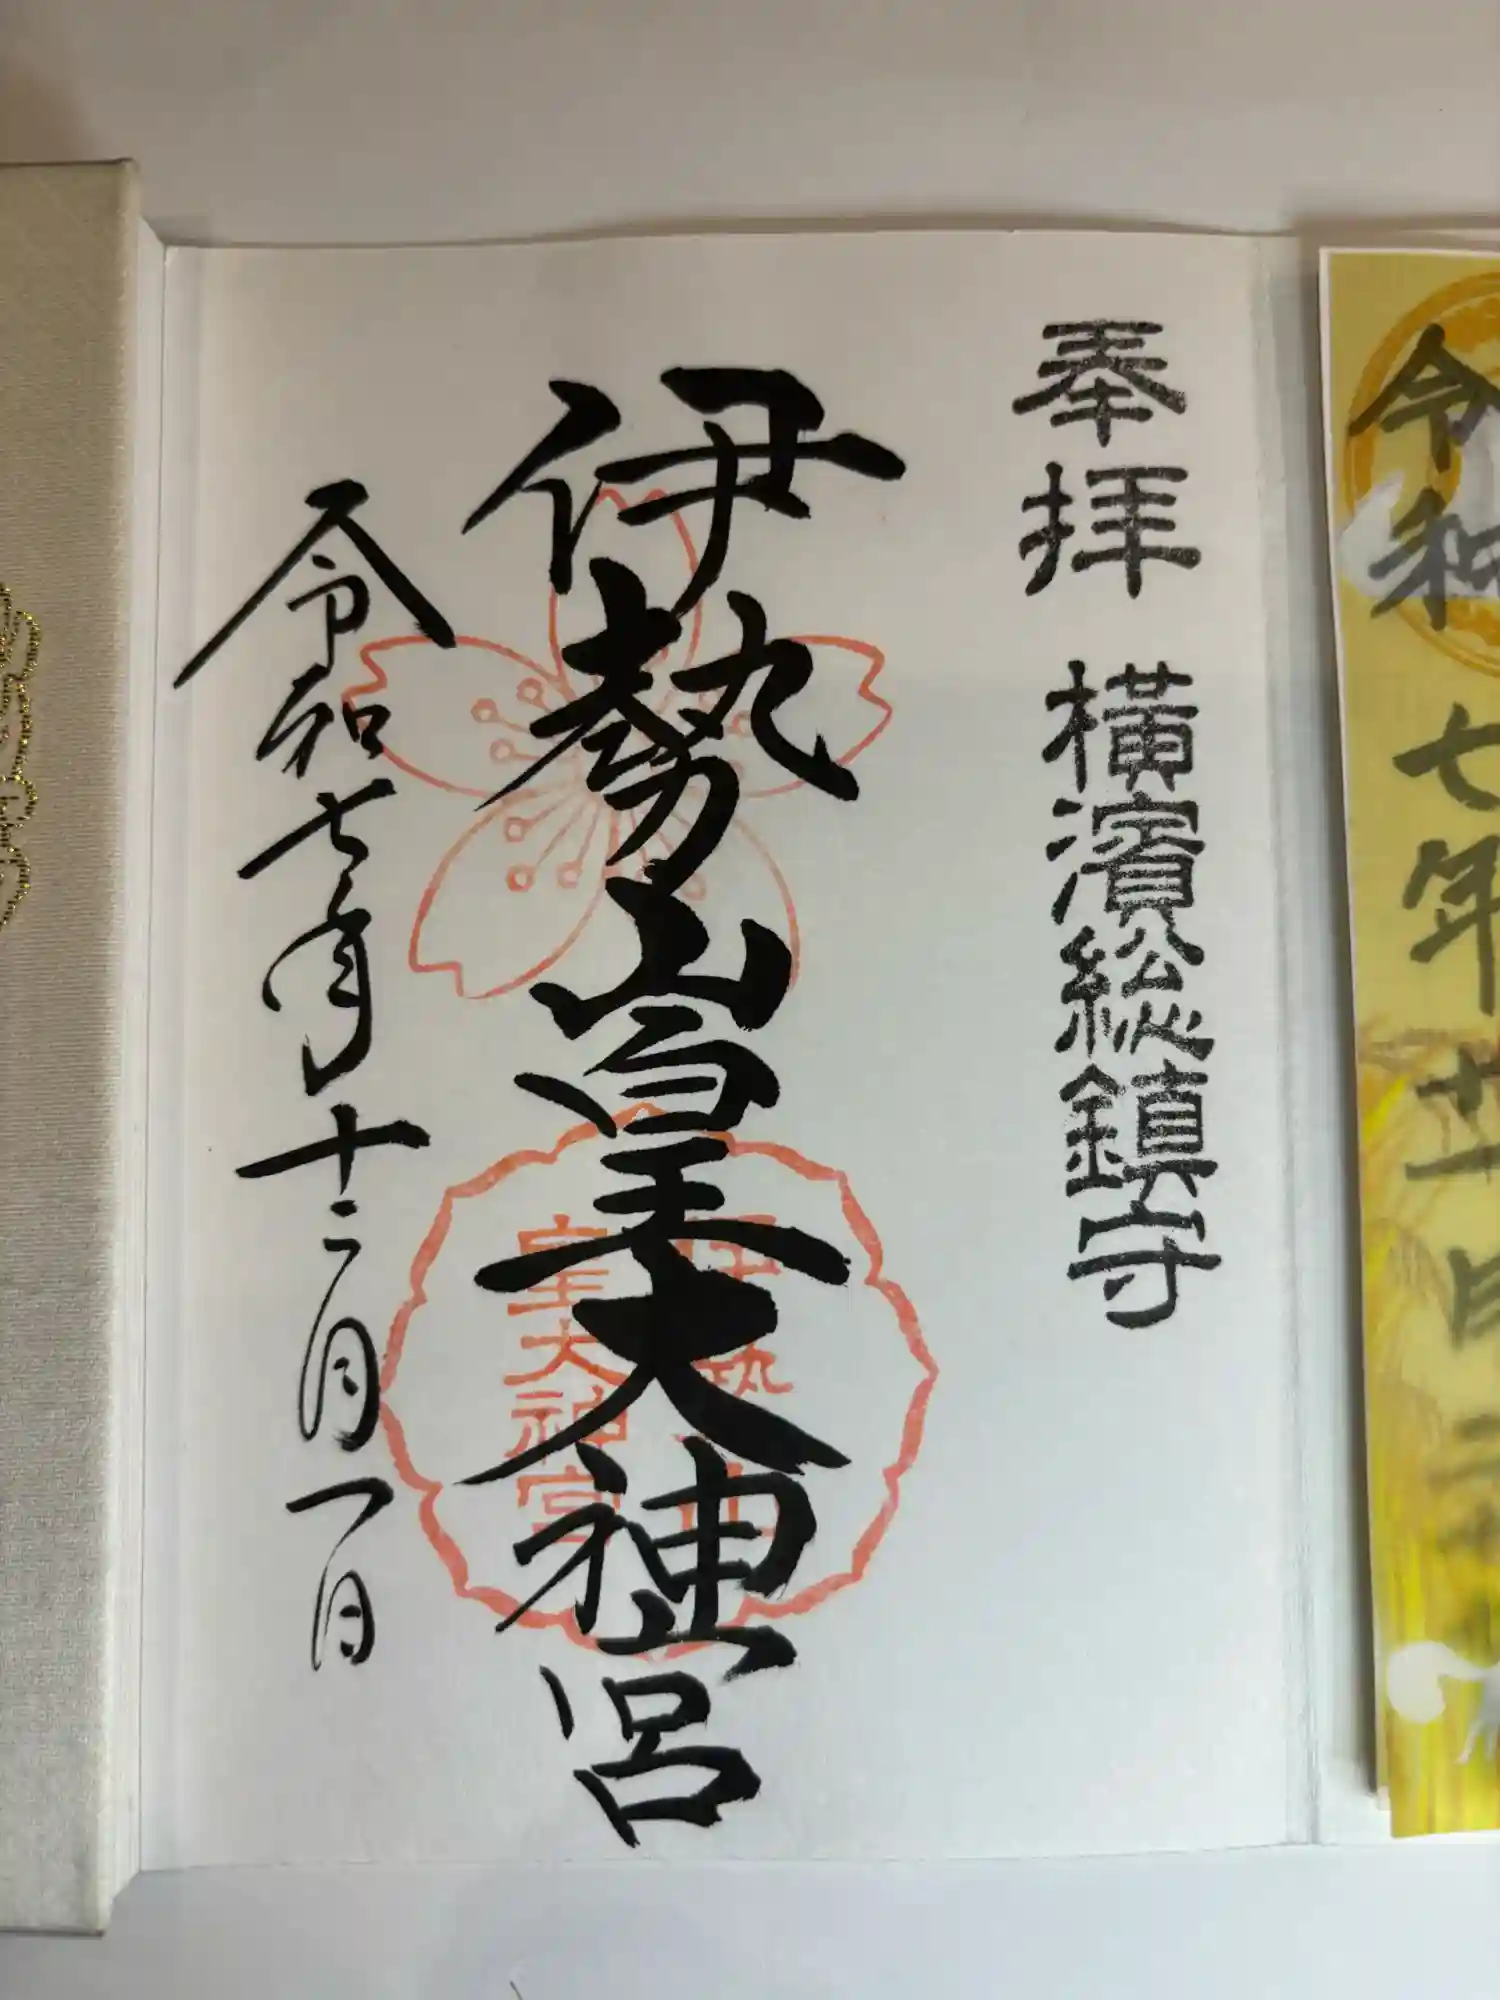 奉拝 横濱総鎮守
伊勢山皇大神宮
伊勢山
皇大神宮
令和七年十二月一日
令和七年